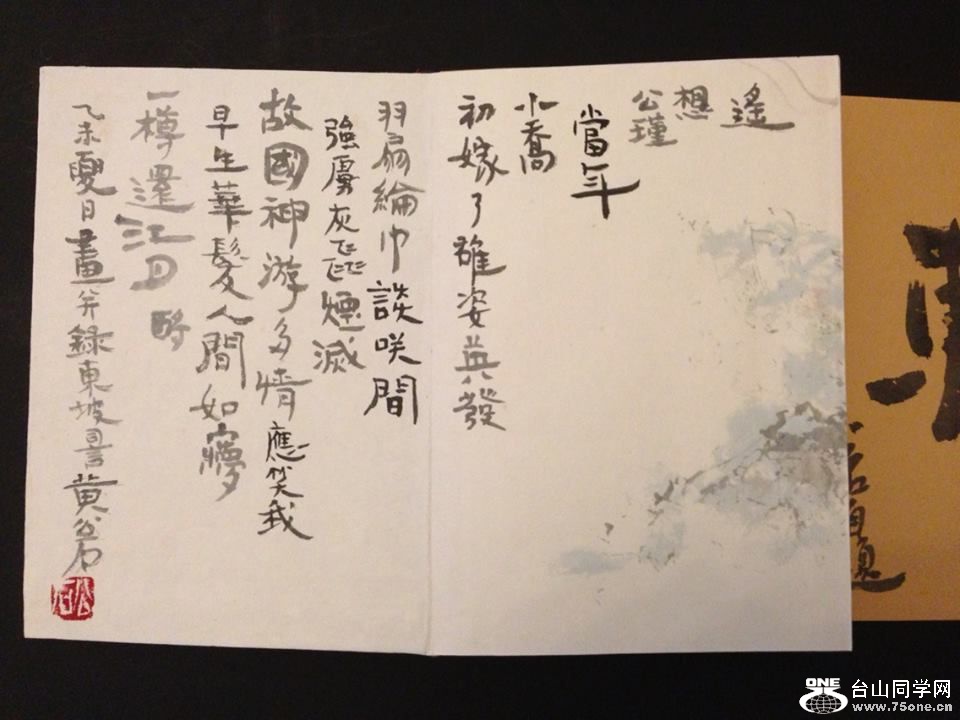 遙
想
公瑾
當年
小喬
初嫁了雄姿英發
羽扇綸巾談咲間
強虜灰飛煙滅
故國神游多情應笑我
早生華髮人間如夢
一樽還江月
酹
乙未夏日畫并錄東坡言黃公石
公石
ONE
台山同学网
www.75one.cn